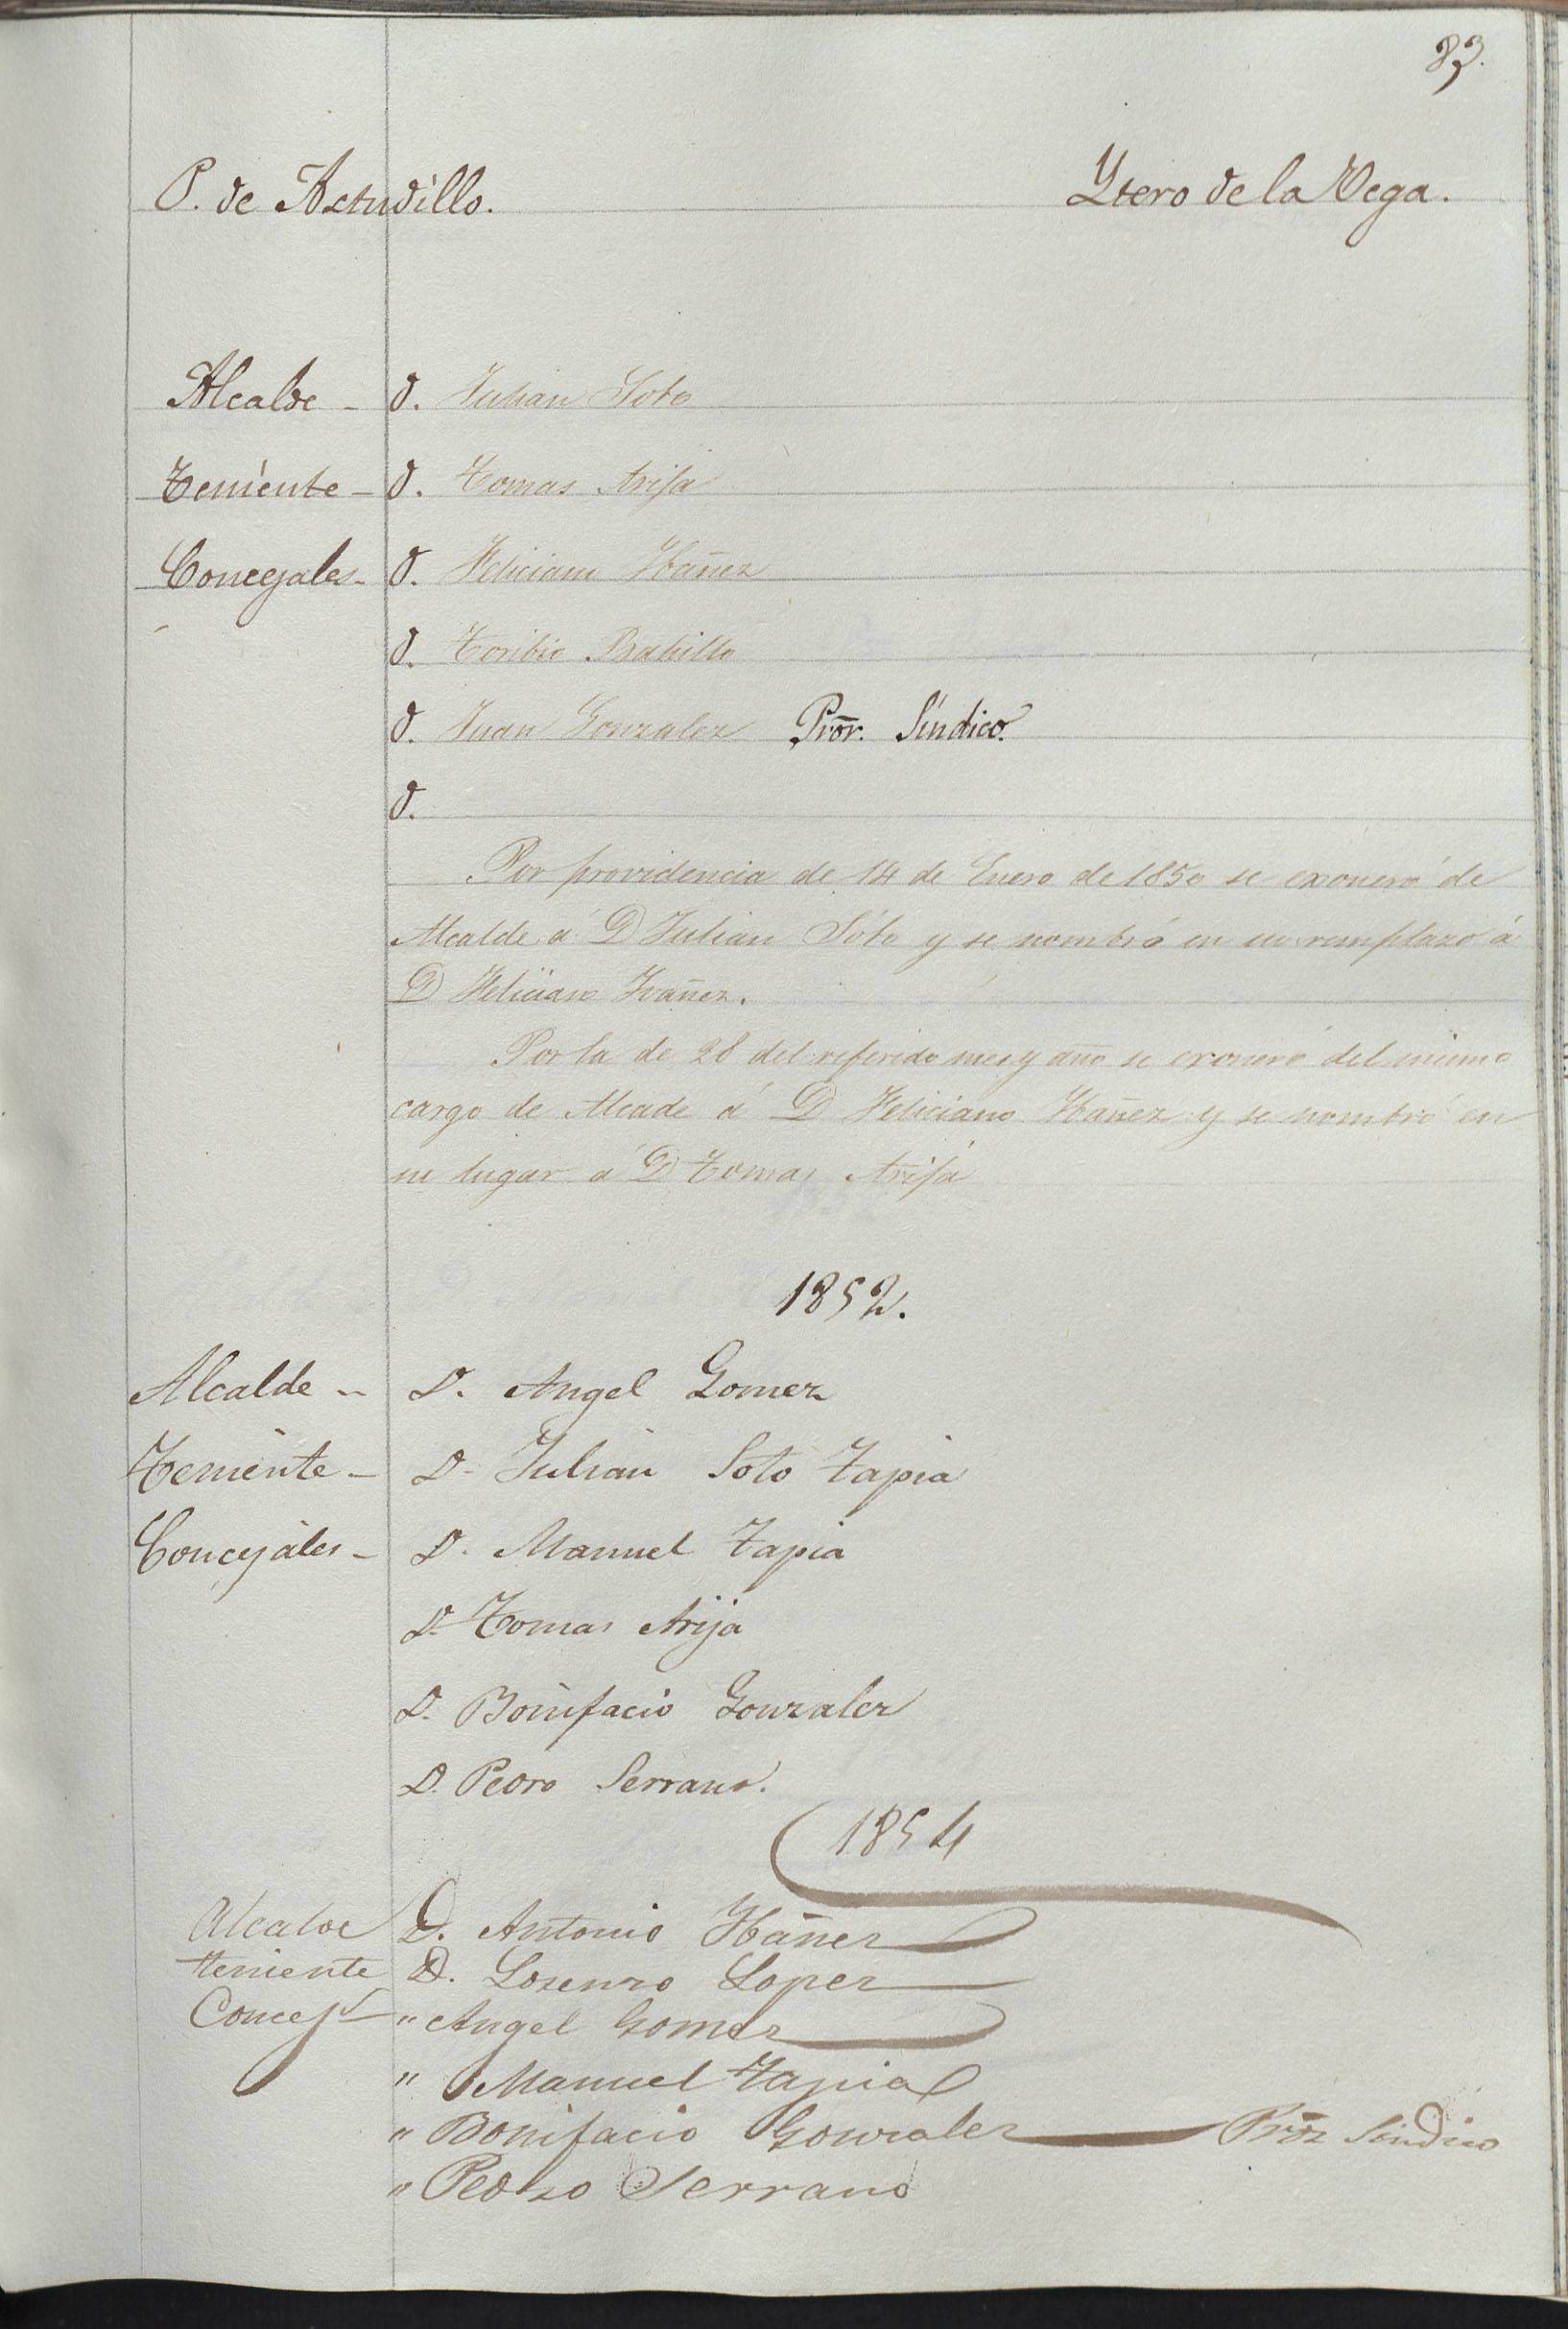 83.
P. de Astudillo. Ytero de la Vega.
Alcalde - D. Julian Soto
Teniente - D. Tomas Arija
Concejales - D. Feliciano Ybañez
D. Toribio Bahillo
D. Juan Gonzalez Pror. Síndico.
D.
Por providencia de 14 de Enero de 1850 se exoneró de
Alcalde á D Julian Soto y se nombró en su remplazo á
D Feliciano Ybañez.
Por la de 28 del referido mes y año se exoneró del mismo
cargo de Alcade á D Feliciano Ybañez y se nombró en
su lugar á D Tomas Arija
1852.
Alcalde - D. Angel Gomez
Teniente - D. Julian Soto Tapia
Concejales - D. Manuel Tapia
D. Tomas Arija
D. Bonifacio Gonzalez
D. Pedro Serrano.
1854
Alcalde D. Antonio Ybañez
teniente D. Lorenzo Lopez
Concejs " Angel Gomez
" Manuel Tapia
" Bonifacio Gonzalez Pror Sindico
" Pedro Serrano